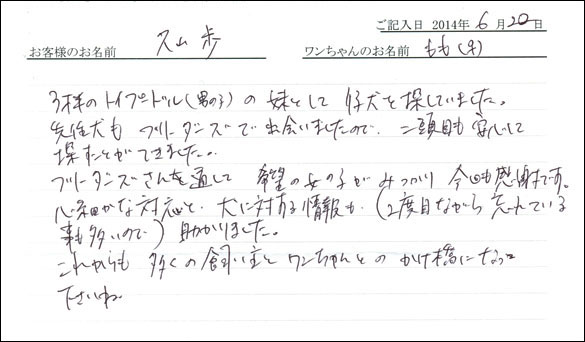 ご記入日 2014年 6月 20日
お客様のお名前 久山 歩 ワンちゃんのお名前 もも(♀)
3才のトイプードル(男の子)の妹として 仔犬を探していました。
先住犬も ブリーダーズで出会いましたので、二頭目も安心して
探すことができました。
ブリーダーズさんを通して 希望の女の子がみつかり 今回も感謝です。
心細かな対応と、犬に対する情報も、(2度目ながら 忘れている
事も多いので) 助かりました。
これからも 多くの飼い主と ワンちゃんとの かけ橋になって
下さいね。